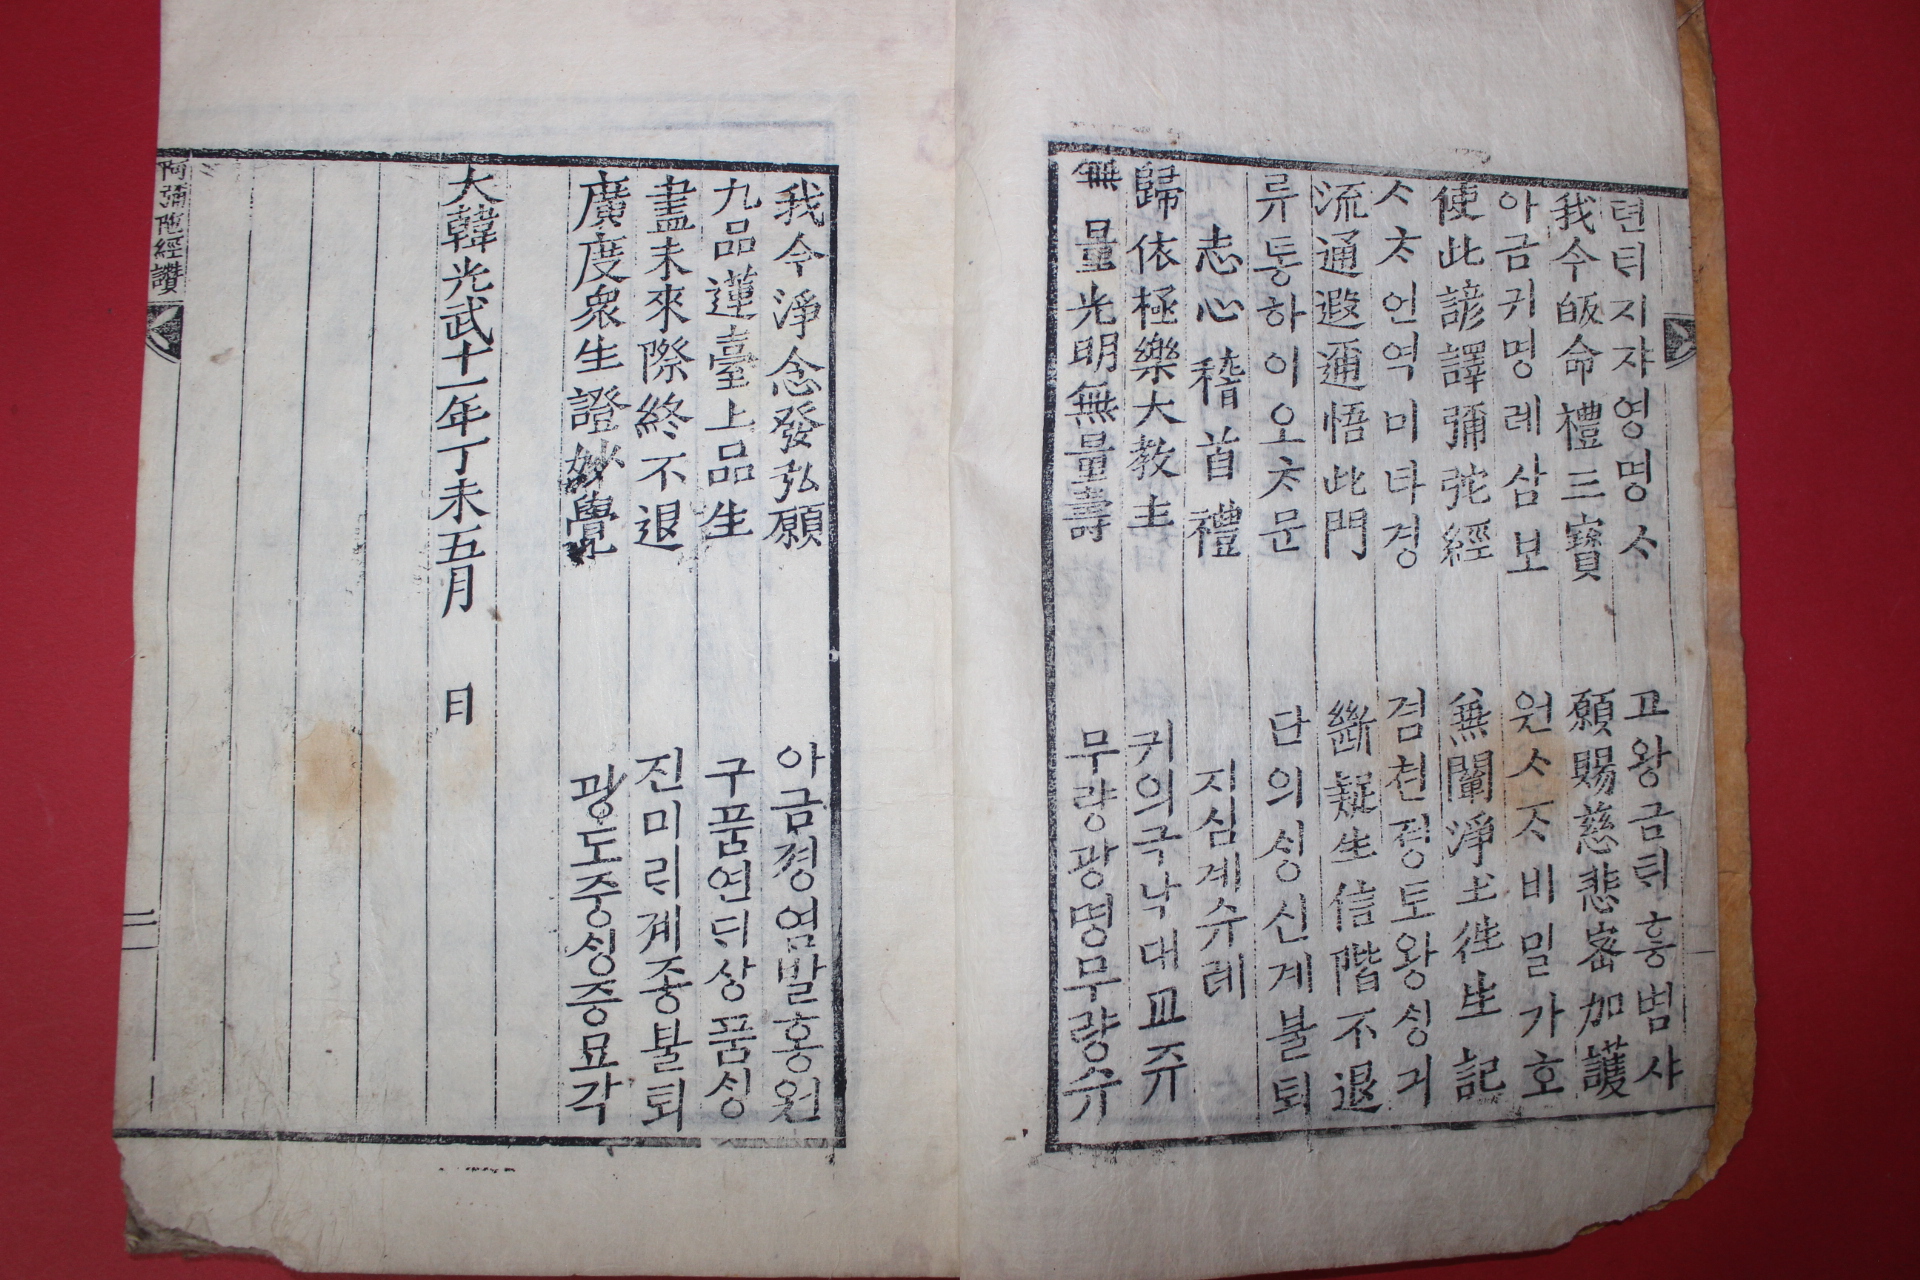 텬ᄐᆡ지쟈영명ᄉᆞ 고왕금ᄐᆡ흥범샤
我今皈命禮三寳 願賜慈悲宻加護
아금귀명례삼보 원ᄉᆞᄌᆞ비밀가호
使此諺譯彌陀經 兼闡淨土徃生記
ᄉᆞᄎᆞ언역미타경 겸쳔졍토왕ᄉᆡᆼ긔
流通遐邇悟此門 斷疑生信階不退
류통하이오ᄎᆞ문 단의ᄉᆡᆼ신계불퇴
志心稽首禮 지심계슈례
歸依極樂大教主 귀의극낙대교쥬
無量光明無量壽 무량광명무량슈
我今淨念發弘願 아금졍염발홍원
九品蓮臺上品生 구품연ᄃᆡ상품ᄉᆡᆼ
盡未來際終不退 진미ᄅᆡ계죵불퇴
廣度衆生證妙覺 광도중ᄉᆡᆼ증묘각
大韓光武十一年丁未五月 日
阿彌陀經讚